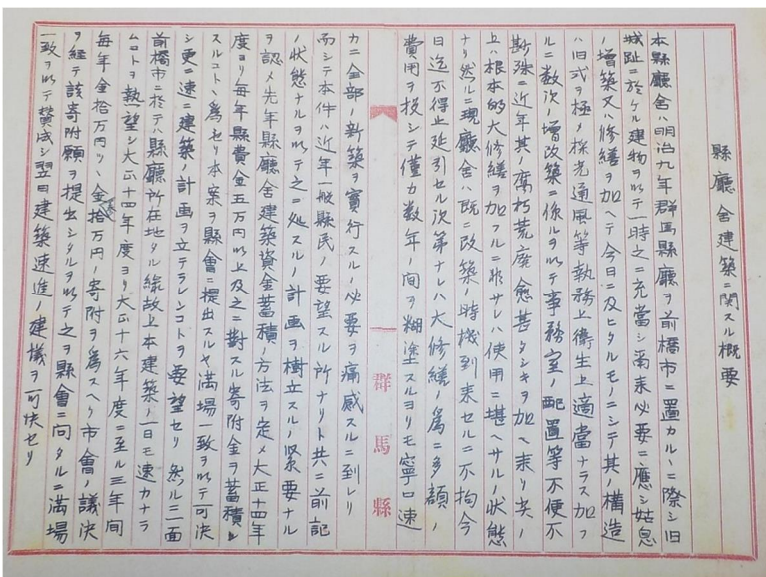 縣廳舍建築ニ関スル概要
本縣廳舍ハ明治九年群馬縣廳ヲ前橋市ニ置カルヽニ際シ旧
城趾ニ於ケル建物ヲ以テ一時之ニ充當シ爾来必要ニ應シ姑息
ノ増築又ハ修繕ヲ加ヘテ今日ニ及ヒタルモノニシテ其ノ構造
ハ旧式ヲ極メ採光通風等執務上衛生上適當ナラス加フ
ルニ数次ノ増改築ニ係ルヲ以テ事務室ノ配置等不便不
斯殊ニ近年其ノ腐朽荒廃愈甚タシキヲ加ヘ来リ実ノ
上ハ根本的大修繕ヲ加フルニ非サレハ使用ニ堪ヘサル状態
ナリ然ルニ現廳舍ハ既ニ改築ノ時機到来セルニ不拘今
日迄不得止延引セル次第ナレハ大修繕ノ為ニ多額ノ
費用ヲ投シテ僅カ数年ノ間ヲ糊塗スルヨリモ寧ロ速
群馬縣
カニ全部ノ新築ヲ實行スルノ必要ヲ痛感スルニ到レリ
而シテ本件ハ近年一般縣民ノ要望スル所ナリト共ニ前記
ノ状態ナルヲ以テ之ニ処スルノ計画ヲ樹立スルノ緊要ナル
ヲ認メ先年縣廳舍建築資金蓄積ノ方法ヲ定メ大正十四年
度ヨリ毎年縣費金五万円以上及之ニ對スル寄附金ヲ蓄積
スルコトヽ為セリ本案ヲ縣會ニ提出スルヤ満場一致ヲ以テ可決
シ更ニ速ニ建築ノ計画ヲ立テラレンコトヲ要望セリ 然ルニ一面
前橋市ニ於テハ縣廳所在地タル縁故上本建築ノ一日モ速カナラ
ムコトヲ執望シ大正十四年度ヨリ大正十六年度ニ至ル三年間
毎年金拾万円ツヽ金拾万円ノ寄附ヲ為スヘク市會ノ議決
ヲ経テ該寄附願ヲ提出シタルヲ以テ之ヲ縣會ニ向タルニ満場
一致ヲ以テ賛成シ翌日建築速進ノ建議ヲ可決セリ